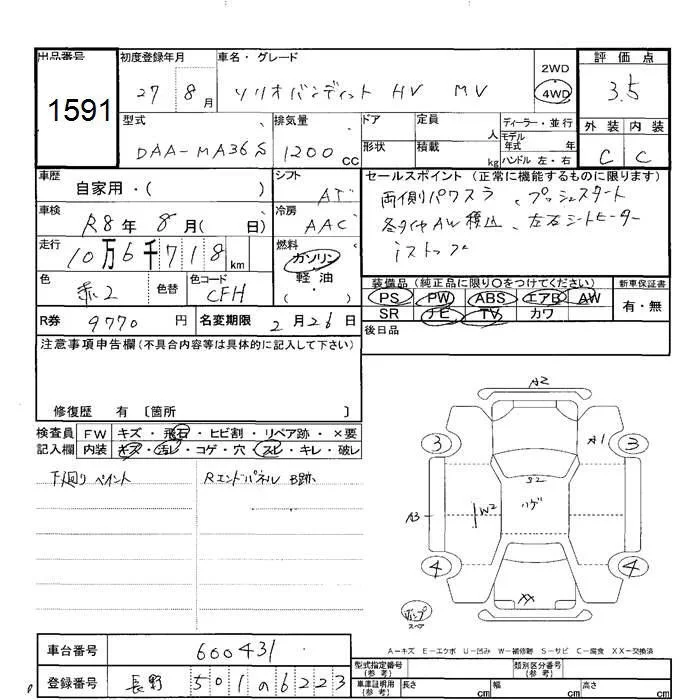 出品番号
1591
初度登録年月
27 8月
車名・グレード
ソリオバンディット HV MV
2WD
4WD
評価点
3.5
型式
DAA-MA36S
排気量
1200cc
ドア
定員
人
ディーラー・並行
モデル年式 年
形状
積載
kg
ハンドル 左・右
外装 内装
C C
車歴
自家用・( )
シフト
AT
セールスポイント(正常に機能するものに限ります)
両側パワスラ、プッシュスタート
冬タイヤAW積込、左右シートヒーター
iストップ
車検
R8年 8月( 日)
冷房
AAC
走行
10万6千718km
燃料
ガソリン
軽油
・( )
色
赤2
色替
色コード
CFH
装備品(純正品に限り○をつけてください)
新車保証書
PS PW ABS エアB AW
有・無
SR ナビ TV カワ
R券 9770円
名変期限 2月26日
後日品
注意事項申告欄(不具合内容等は具体的に記入して下さい)
修復歴 有〔箇所 〕
検査員
記入欄
FW キズ・飛石・ヒビ割・リペア跡・×要
内装 キズ・汚レ・コゲ・穴・スレ・キレ・破レ
下廻りペイント
Rエンドパネル B跡
A2
3
A1
3
S2
A3
W2
ハゲ
4
4
XX
ポンプ
スペア
A-キズ E-エクボ U-凹み W-補修跡 S-サビ C-腐食 XX-交換済
車台番号
600431
登録番号
長野 501の6223
型式指定番号
(参考)
類別区分番号
(参考)
車庫証明用
(参考)
長さ cm
幅 cm
高さ cm